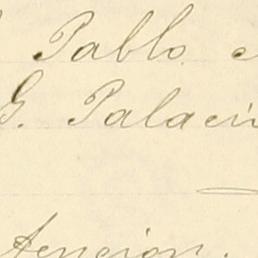 Pablo
G. Palacin
tencion.